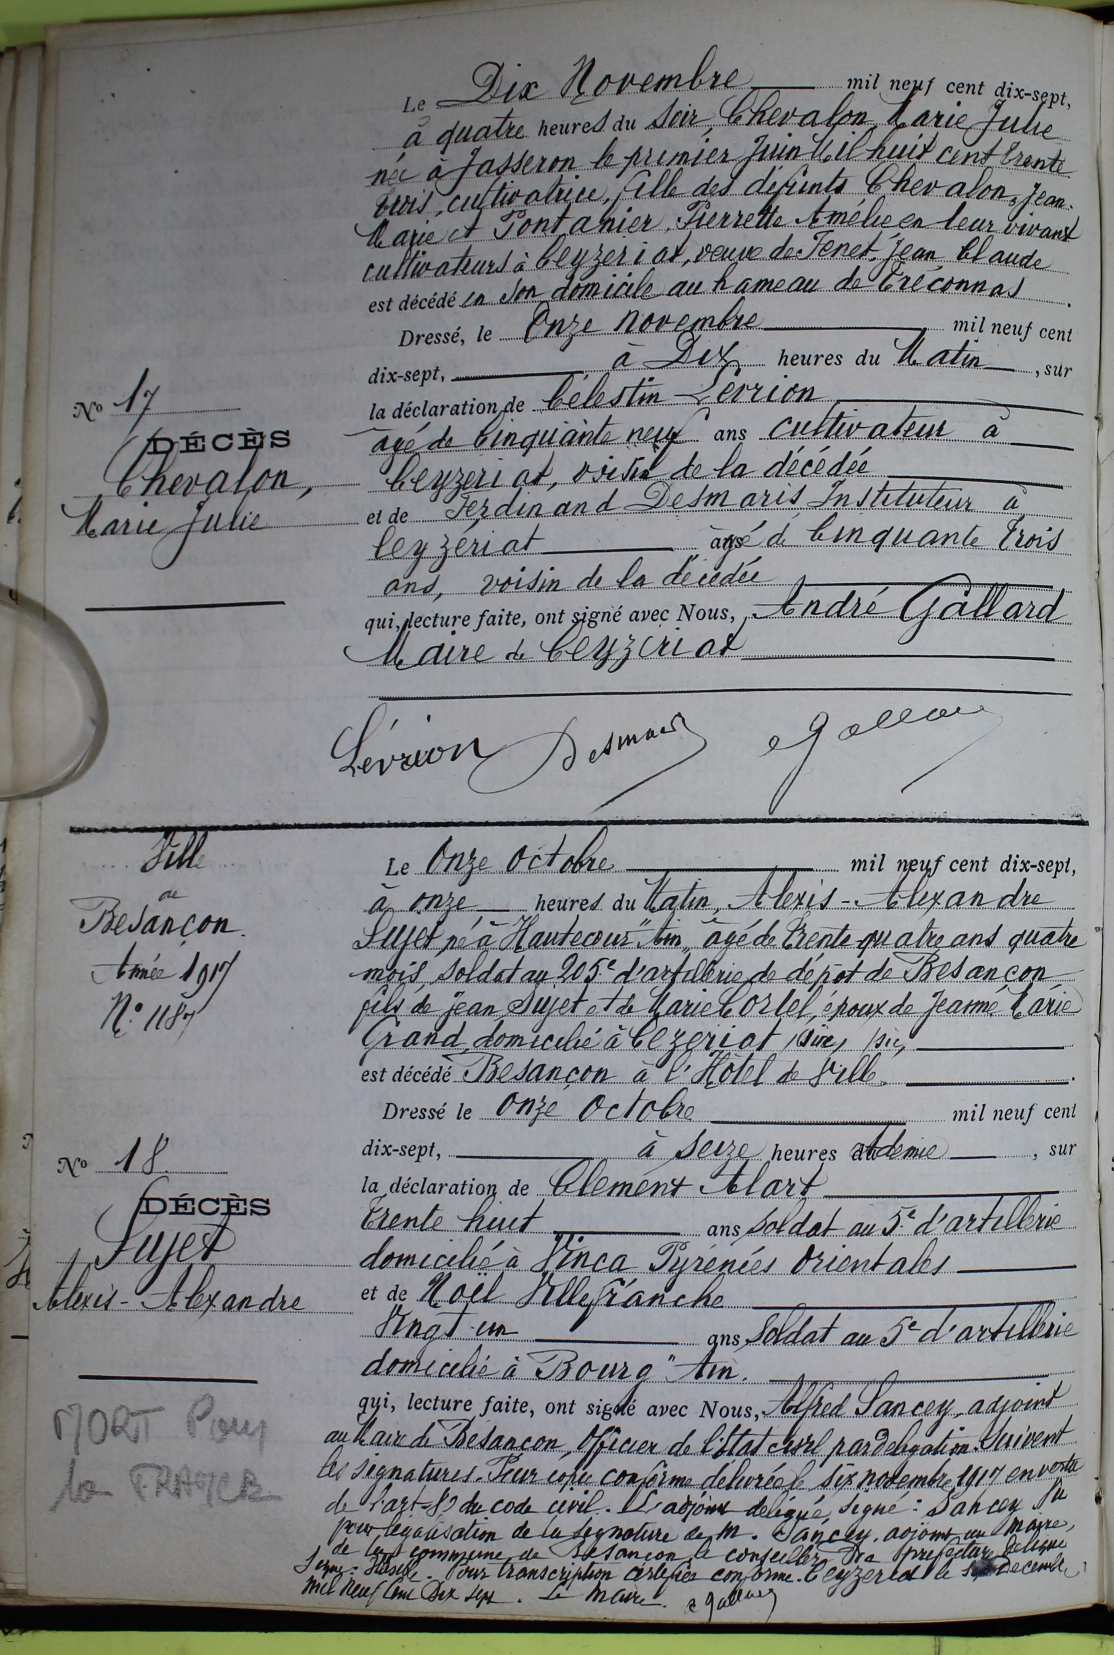 Le Dix Novembre mil neuf cent dix-sept,
à quatre heures du soir, Chevalon, Marie Julie
née à Jasseron le premier Juin Mil huit cent trente
trois, cultivatrice, fille des défunts Chevalon, Jean-
Marie et Pontanier, Pierrette Amélie en leur vivant
cultivateurs à Ceyzeriat, veuve de Tenet, Jean Claude
est décédé en son domicile au hameau de Tréconnas.
Dressé, le Onze Novembre mil neuf cent
dix-sept, à Dix heures du Matin, sur
la déclaration de Célestin Lévrion
âgé de Cinquante neuf ans cultivateur à
Ceyzeriat, voisin de la décédée
et de Ferdinand Desmaris, Instituteur à
Ceyzériat âgé de Cinquante trois
ans, voisin de la décédée
qui, lecture faite, ont signé avec Nous, André Gallard
Maire de Ceyzériat
Nº 17
DÉCÈS
Chevalon,
Marie Julie
Lévrion Desmaris Gallard
Ville
de
Besançon.
Année 1917
Nº 1187
Nº 18
DÉCÈS
Sujet
Alexis-Alexandre
MORT Pour
la FRANCE
Le Onze Octobre mil neuf cent dix-sept,
à onze heures du Matin, Alexis-Alexandre
Sujet, né à Hautecour "Ain", âgé de trente-quatre ans quatre
mois, soldat au 205e d'artillerie de dépôt de Besançon
fils de Jean Sujet et de Marie Cortel, époux de Jeanne Marie
Grand, domicilié à Cezeriat
est décédé Besançon à l'Hôtel de Ville.
Dressé le onze Octobre mil neuf cent
dix-sept, à seize heures demie, sur
la déclaration de Clément Alart
trente huit ans soldat au 5e d'artillerie
domicilié à Vinca Pyrénées Orientales
et de Noël Villefranche
Vingt-un ans soldat au 5e d'artillerie
domicilié à Bourg "Ain.
qui, lecture faite, ont signé avec Nous, Alfred Sancey, adjoint
au Maire de Besançon, Officier de l'état civil par délégation. Suivent
les signatures. Pour copie conforme délivrée le six novembre 1917 en vertu
de l'art 80 du code civil. L'adjoint délégué, signé: Sancey Vu
pour légalisation de la signature de M. Sancey, adjoint au Maire,
de la commune de Besançon le conseiller de préfecture délégué
Signé: Pour transcription certifiée conforme. Ceyzeriat le Decembre
mil neuf cent dix sept. Le Maire. Gallard